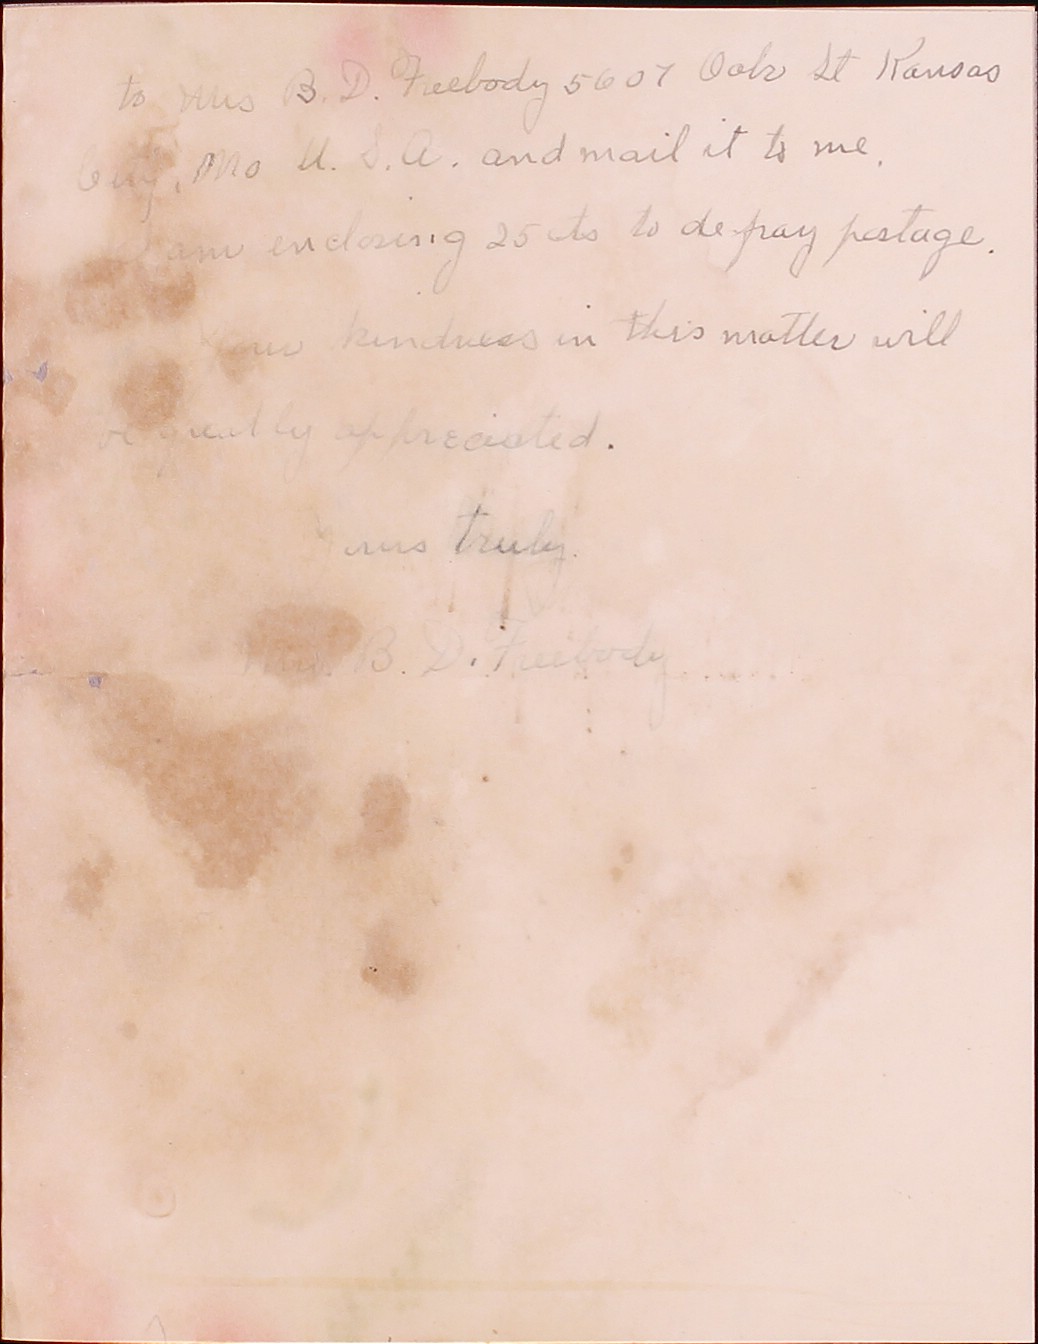 to Mrs B. D. Freebody 5607 Oak St Kansas
City, Mo U. S. A. and mail it to me.
I am enclosing 25 cts to defray postage.
Your kindness in this matter will
be greatly appreciated.
Yours truly.
Mrs. B. D. Freebody